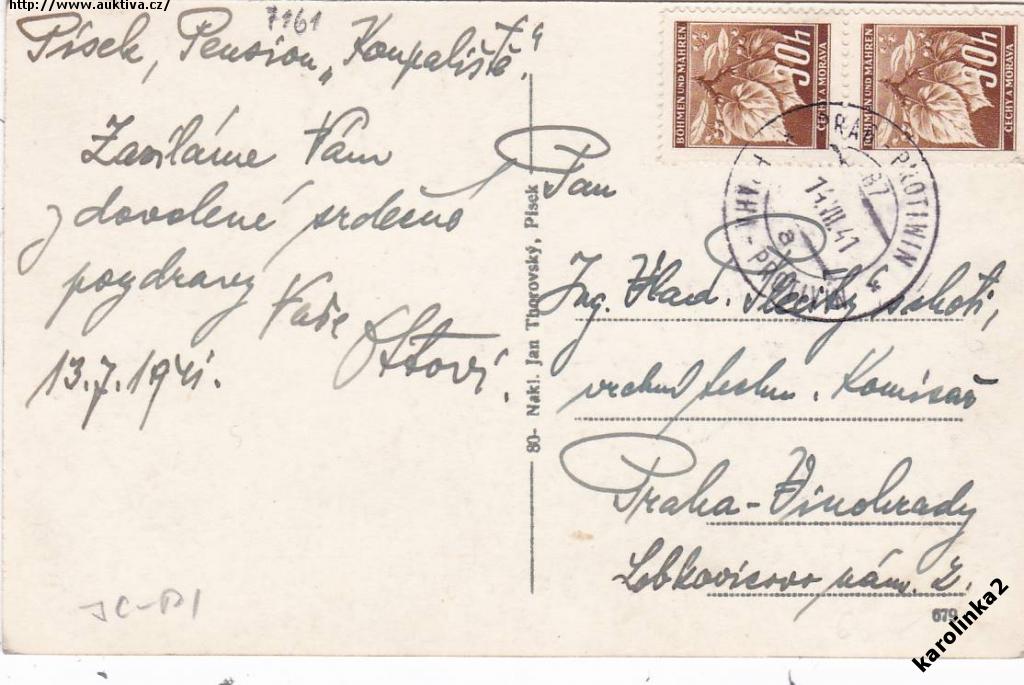 http://www.auktiva.cz/
7161
Písek, Pension „Koupaliště“.
Zasíláme Vám
z dovolené srdečné
pozdravy Vaše
Ottovi.
13.7.1941.
80- Nakl. Jan Thorovský, Písek
BÖHMEN UND MÄHREN
30h
ČECHY A MORAVA
BÖHMEN UND MÄHREN
30h
ČECHY A MORAVA
PROTIWIN
14.VII.41
Pan
Ing. choti,
vrchní techn. Komisař
Praha-Vinohrady
Lobkovicovo nám. 2.
679
karolinka2